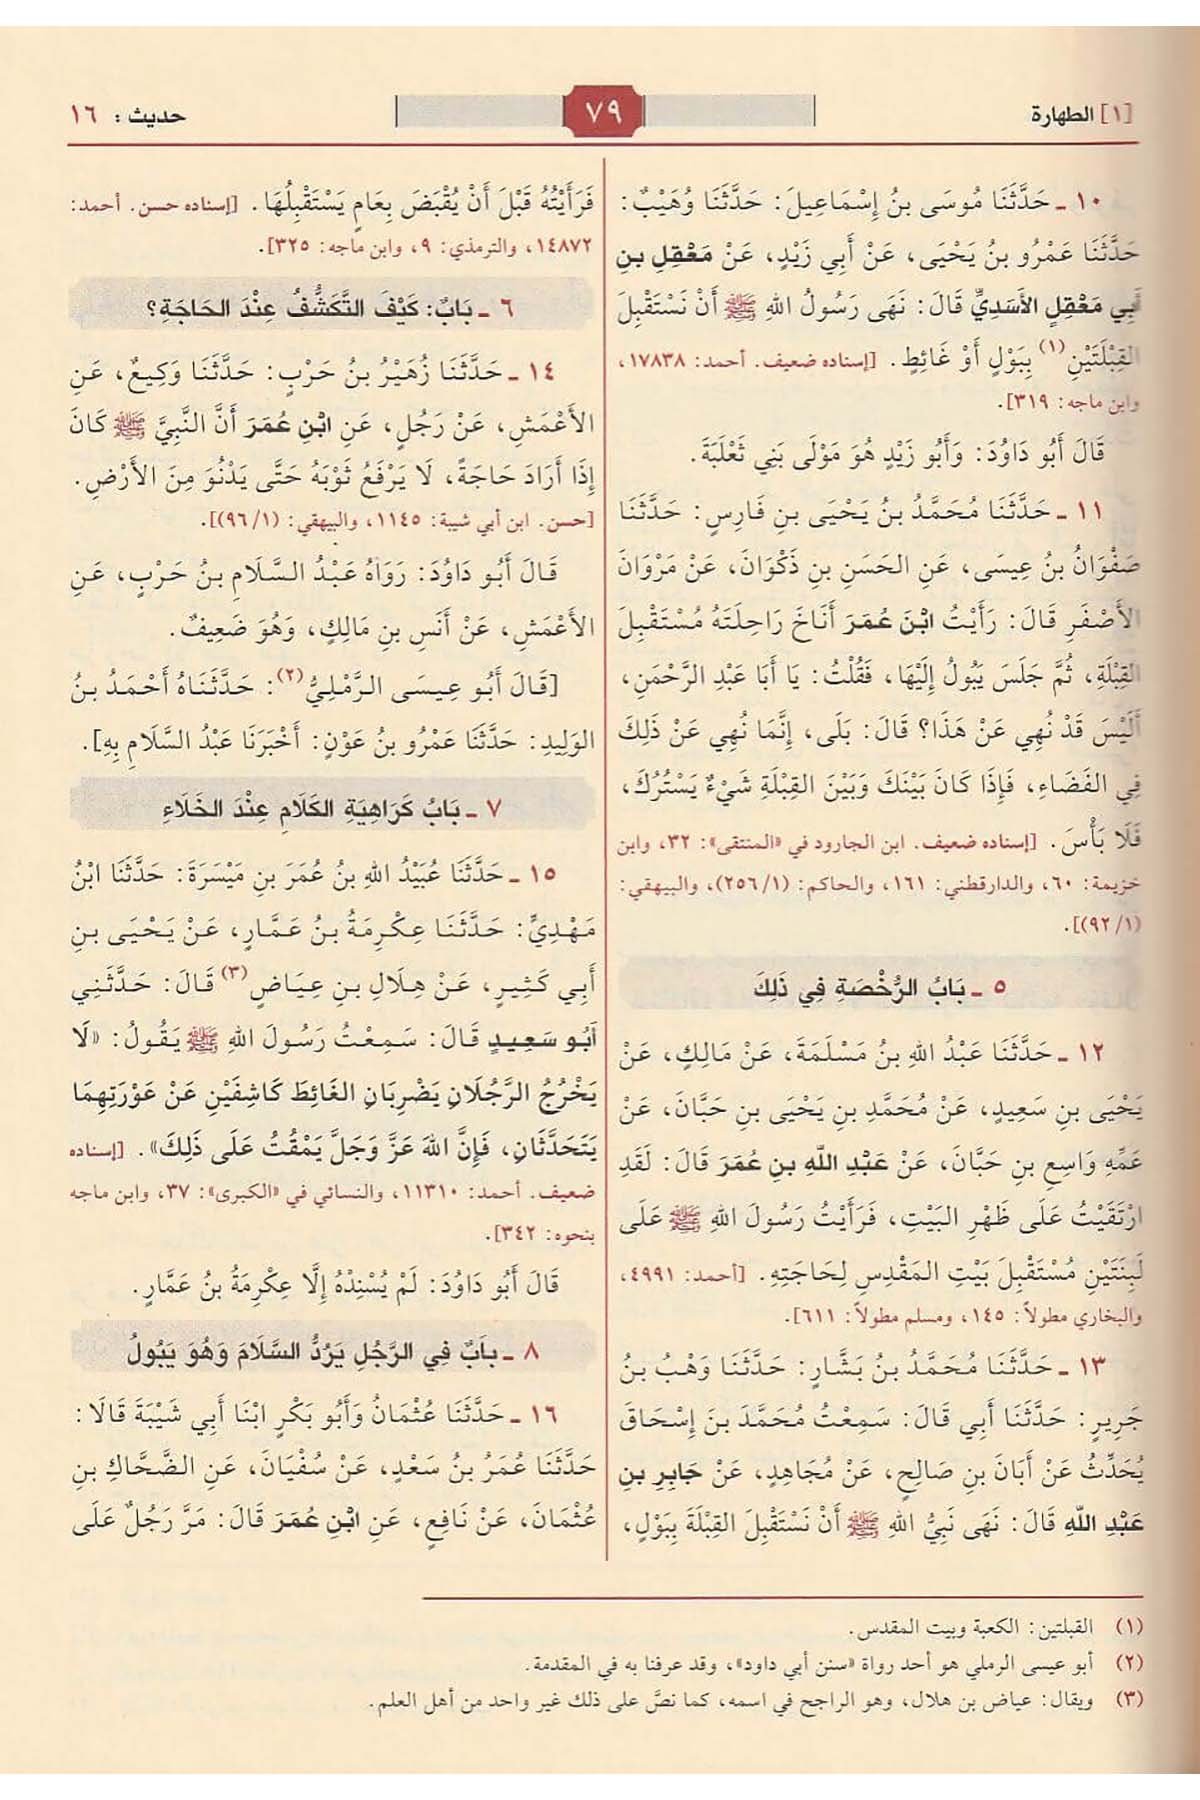 [١] الطهارة
٧٩
حديث: ١٦
١٠ - حَدَّثَنَا مُوسَى بنُ إِسْمَاعِيلَ: حَدَّثَنَا وُهَيْبٌ:
حَدَّثَنَا عَمْرُو بنُ يَحْيَى، عَنْ أَبِي زَيْدٍ، عَنْ مَعْقِلِ بنِ
أَبِي مَعْقِلٍ الأَسَدِيِّ قَالَ: نَهَى رَسُولُ اللهِ ﷺ أَنْ نَسْتَقْبِلَ
القِبْلَتَيْنِ(١) بِبَوْلٍ أَوْ غَائِطٍ. [إسناده ضعيف. أحمد: ١٧٨٣٨،
وابن ماجه: ٣١٩].
قَالَ أَبُو دَاوُدَ: وَأَبُو زَيْدٍ هُوَ مَوْلَى بَنِي ثَعْلَبَةَ.
١١ - حَدَّثَنَا مُحَمَّدُ بنُ يَحْيَى بنِ فَارِسٍ: حَدَّثَنَا
صَفْوَانُ بنُ عِيسَى، عَنِ الحَسَنِ بنِ ذَكْوَانَ، عَنْ مَرْوَانَ
الأَصْفَرِ قَالَ: رَأَيْتُ ابْنَ عُمَرَ أَنَاخَ رَاحِلَتَهُ مُسْتَقْبِلَ
القِبْلَةِ، ثُمَّ جَلَسَ يَبُولُ إِلَيْهَا، فَقُلْتُ: يَا أَبَا عَبْدِ الرَّحْمَنِ،
أَلَيْسَ قَدْ نُهِيَ عَنْ هَذَا؟ قَالَ: بَلَى، إِنَّمَا نُهِيَ عَنْ ذَلِكَ
فِي الفَضَاءِ، فَإِذَا كَانَ بَيْنَكَ وَبَيْنَ القِبْلَةِ شَيْءٌ يَسْتُرُكَ،
فَلَا بَأْسَ. [إسناده ضعيف. ابن الجارود في «المنتقى»: ٣٢، وابن
خزيمة: ٦٠، والدارقطني: ١٦١، والحاكم: (٢٥٦/١)، والبيهقي:
(٩٢/١)].
٥ - بَابُ الرُّخْصَةِ فِي ذَلِكَ
١٢ - حَدَّثَنَا عَبْدُ اللهِ بنُ مَسْلَمَةَ، عَنْ مَالِكٍ، عَنْ
يَحْيَى بنِ سَعِيدٍ، عَنْ مُحَمَّدِ بنِ يَحْيَى بنِ حَبَّانَ، عَنْ
عَمِّهِ وَاسِعِ بنِ حَبَّانَ، عَنْ عَبْدِ اللَّهِ بنِ عُمَرَ قَالَ: لَقَدِ
ارْتَقَيْتُ عَلَى ظَهْرِ البَيْتِ، فَرَأَيْتُ رَسُولَ اللهِ ﷺ عَلَى
لَبِنَتَيْنِ مُسْتَقْبِلَ بَيْتِ المَقْدِسِ لِحَاجَتِهِ. [أحمد: ٤٩٩١،
والبخاري مطولاً: ١٤٥، ومسلم مطولاً: ٦١١].
١٣ - حَدَّثَنَا مُحَمَّدُ بنُ بَشَّارٍ: حَدَّثَنَا وَهْبُ بنُ
جَرِيرٍ: حَدَّثَنَا أَبِي قَالَ: سَمِعْتُ مُحَمَّدَ بنَ إِسْحَاقَ
يُحَدِّثُ عَنْ أَبَانَ بنِ صَالِحٍ، عَنْ مُجَاهِدٍ، عَنْ جَابِرِ بنِ
عَبْدِ اللَّهِ قَالَ: نَهَى نَبِيُّ اللهِ ﷺ أَنْ نَسْتَقْبِلَ القِبْلَةَ بِبَوْلٍ،
فَرَأَيْتُهُ قَبْلَ أَنْ يُقْبَضَ بِعَامٍ يَسْتَقْبِلُهَا. [إسناده حسن. أحمد:
١٤٨٧٢، والترمذي: ٩، وابن ماجه: ٣٢٥].
٦ - بَابٌ: كَيْفَ التَّكَشُّفُ عِنْدَ الحَاجَةِ؟
١٤ - حَدَّثَنَا زُهَيْرُ بنُ حَرْبٍ: حَدَّثَنَا وَكِيعٌ، عَنِ
الأَعْمَشِ، عَنْ رَجُلٍ، عَنِ ابْنِ عُمَرَ أَنَّ النَّبِيَّ ﷺ كَانَ
إِذَا أَرَادَ حَاجَةً، لَا يَرْفَعُ ثَوْبَهُ حَتَّى يَدْنُوَ مِنَ الأَرْضِ.
[حسن. ابن أبي شيبة: ١١٤٥، والبيهقي: (٩٦/١)].
قَالَ أَبُو دَاوُدَ: رَوَاهُ عَبْدُ السَّلَامِ بنُ حَرْبٍ، عَنِ
الأَعْمَشِ، عَنْ أَنَسِ بنِ مَالِكٍ، وَهُوَ ضَعِيفٌ.
[قَالَ أَبُو عِيسَى الرَّمْلِيُّ(٢): حَدَّثَنَاهُ أَحْمَدُ بنُ
الوَلِيدِ: حَدَّثَنَا عَمْرُو بنُ عَوْنٍ: أَخْبَرَنَا عَبْدُ السَّلَامِ بِهِ].
٧ - بَابُ كَرَاهِيَةِ الكَلَامِ عِنْدَ الخَلَاءِ
١٥ - حَدَّثَنَا عُبَيْدُ اللهِ بنُ عُمَرَ بنِ مَيْسَرَةَ: حَدَّثَنَا ابْنُ
مَهْدِيٍّ: حَدَّثَنَا عِكْرِمَةُ بنُ عَمَّارٍ، عَنْ يَحْيَى بنِ
أَبِي كَثِيرٍ، عَنْ هِلَالِ بنِ عِيَاضٍ(٣) قَالَ: حَدَّثَنِي
أَبُو سَعِيدٍ قَالَ: سَمِعْتُ رَسُولَ اللهِ ﷺ يَقُولُ: «لَا
يَخْرُجُ الرَّجُلَانِ يَضْرِبَانِ الغَائِطَ كَاشِفَيْنِ عَنْ عَوْرَتِهِمَا
يَتَحَدَّثَانِ، فَإِنَّ اللهَ عَزَّ وَجَلَّ يَمْقُتُ عَلَى ذَلِكَ». [إسناده
ضعيف. أحمد: ١١٣١٠، والنسائي في «الكبرى»: ٣٧، وابن ماجه
بنحوه: ٣٤٢].
قَالَ أَبُو دَاوُدَ: لَمْ يُسْنِدْهُ إِلَّا عِكْرِمَةُ بنُ عَمَّارٍ.
٨ - بَابٌ فِي الرَّجُلِ يَرُدُّ السَّلَامَ وَهُوَ يَبُولُ
١٦ - حَدَّثَنَا عُثْمَانُ وَأَبُو بَكْرٍ ابْنَا أَبِي شَيْبَةَ قَالَا:
حَدَّثَنَا عُمَرُ بنُ سَعْدٍ، عَنْ سُفْيَانَ، عَنِ الضَّحَّاكِ بنِ
عُثْمَانَ، عَنْ نَافِعٍ، عَنِ ابْنِ عُمَرَ قَالَ: مَرَّ رَجُلٌ عَلَى
(١) القبلتين: الكعبة وبيت المقدس.
(٢) أبو عيسى الرملي هو أحد رواة «سنن أبي داود»، وقد عرفنا به في المقدمة.
(٣) ويقال: عياض بن هلال، وهو الراجح في اسمه، كما نصَّ على ذلك غير واحد من أهل العلم.